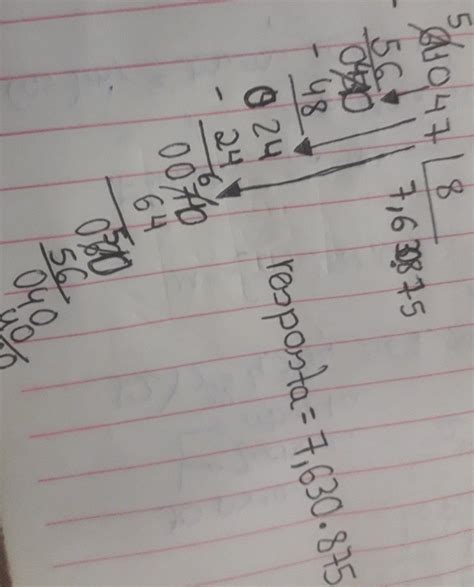 5
61047 | 8
56 7,630875
-
48
-
024
24
0070
64
56
040
resposta = 7,630.875